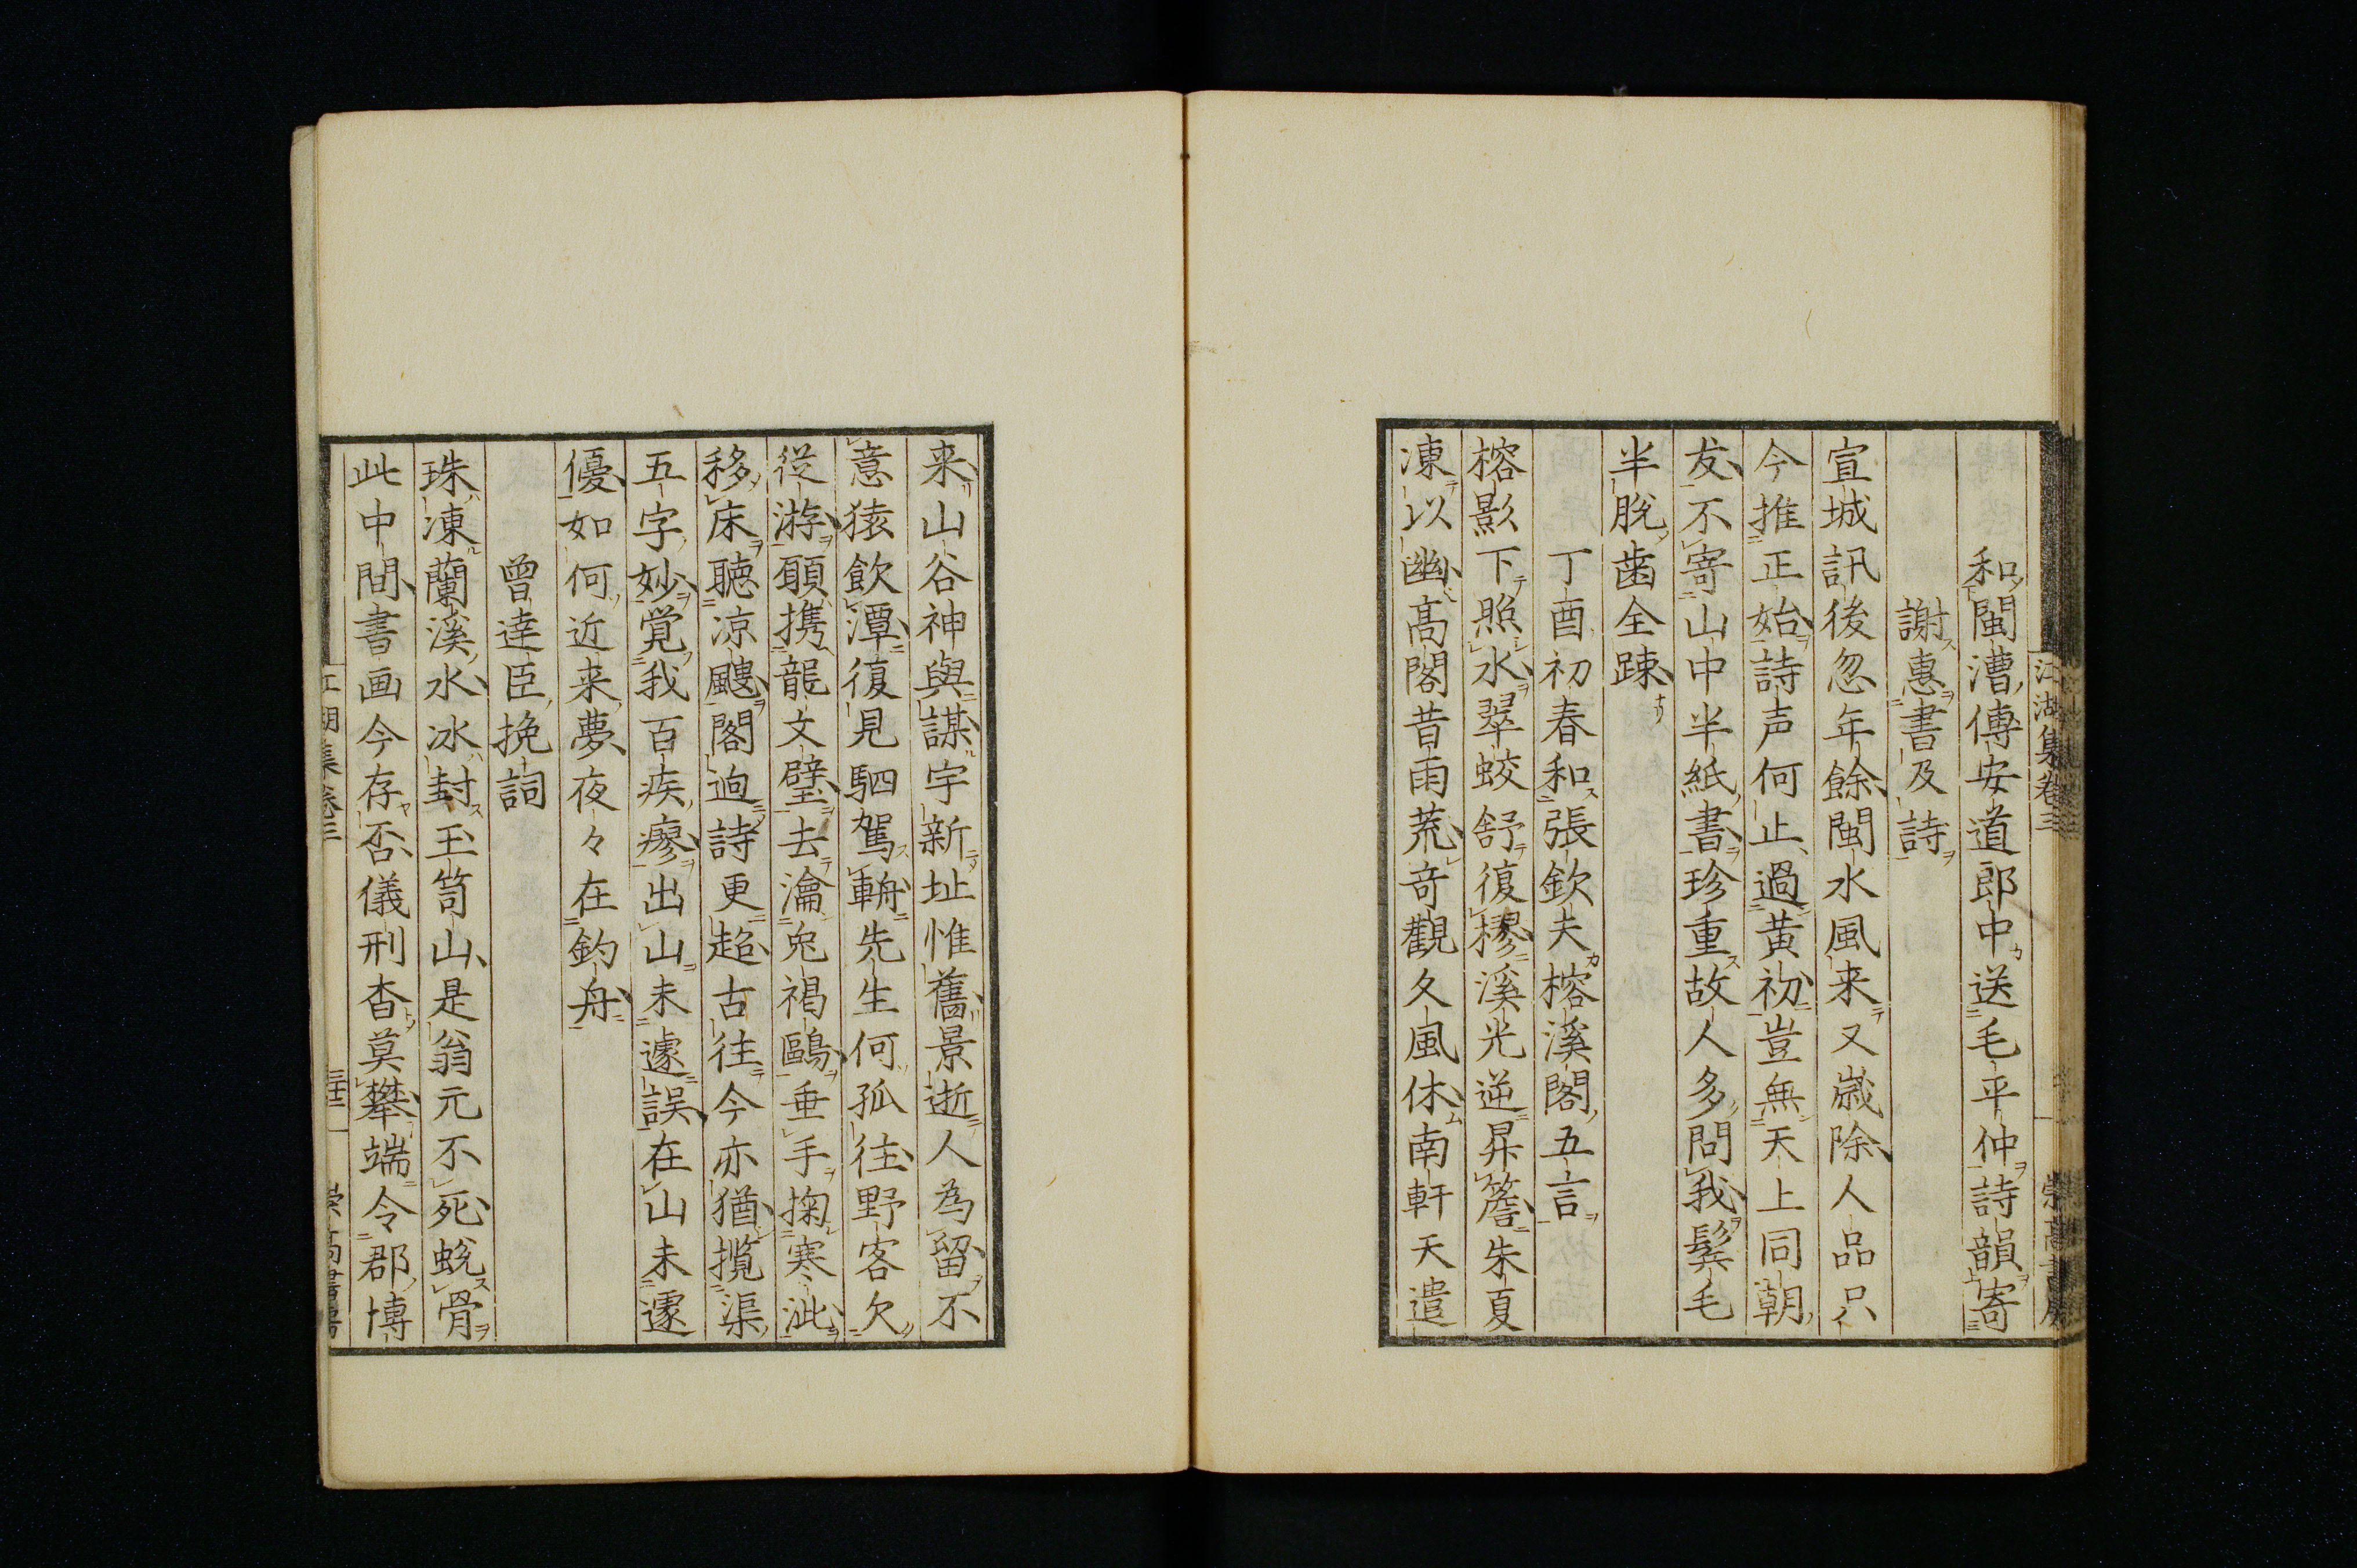 江湖集卷三
和閩漕傅安道郎中送毛平仲詩韻寄
謝惠書及詩
宣城訊後忽年餘閩水風来又歳除人品只
今推正始詩声何止過黄初豈無天上同朝
友不寄山中半紙書珍重故人多問我鬂毛
半脱歯全踈
丁酉初春和張欽夫榕溪閣五言
榕影下照水翠蛟舒復樛溪光逆昇簷朱夏
凍以幽髙閣昔雨荒竒觀久風休南軒天遣
来山谷神與謀宇新址惟舊景逝人為留不
意猿飲潭復見駟駕輈先生何孤往野客欠
従游願携龍文璧去瀹兎褐鷗垂手掬寒泚
移床聴凉飅閣逈詩更超古往今亦猶攬渠
五字妙覚我百疾瘳出山未遽誤在山未遽
優如何近来夢夜々在釣舟
曽逹臣挽詞
珠凍蘭溪水冰封玉笥山是翁元不死蛻骨
此中間書画今存否儀刑杳莫攀端令郡博
江湖集卷三